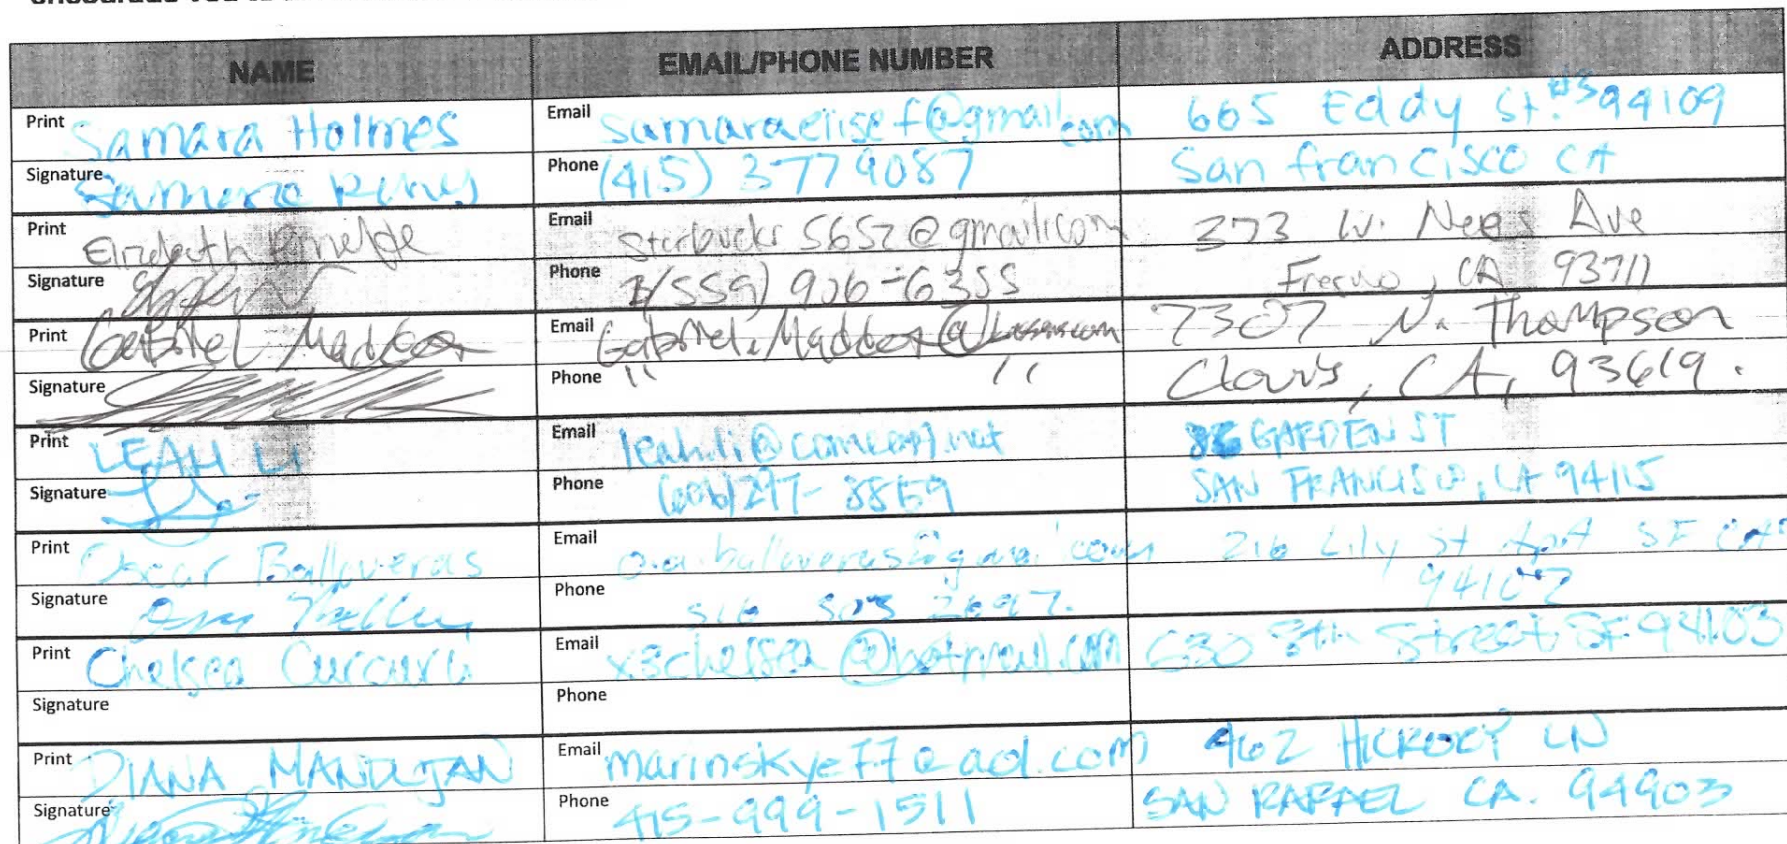 NAME EMAIL/PHONE NUMBER ADDRESS
Print Samara Holmes Email samaraelisef@gmail.com 665 Eddy St. #3 94109
Signature Phone (415) 377 9087 San francisco CA
Print Elizabeth Email Starbucks5652@gmail.com 373 W. Nees Ave
Signature Phone (559) 906-6355 Fresno, CA 93711
Print Gabriel Maddox Email Gabriel.Maddox@ 7307 N. Thompson
Signature Phone " " Clovis, CA, 93619.
Print LEAH LI Email leah.li@comcast.net GARDEN ST
Signature Phone 297-8859 SAN FRANCISCO, CA 94115
Print Oscar Balloveras Email 216 Lily st SF
Signature Phone 516 503 2697. 94102
Print Chelsea Curcuru Email x3chelsea@hotmail.com 630 8th Street SF 94103
Signature Phone
Print DIANA MANDUJAN Email marinskye77@aol.com 462 HICKORY LN
Signature Phone 415-999-1511 SAN RAFAEL CA. 94903